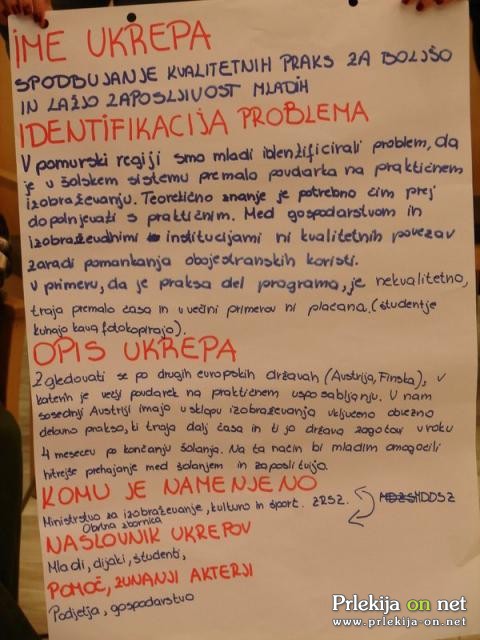 IME UKREPA
SPODBUJANJE KVALITETNIH PRAKS ZA BOLJŠO
IN LAŽJO ZAPOSLJIVOST MLADIH
IDENTIFIKACIJA PROBLEMA
V pomurski regiji smo mladi identificirali problem, da
je v šolskem sistemu premalo poudarka na praktičnem
izobraževanju. Teoretično znanje je potrebno čim prej
dopolnjevati s praktičnim. Med gospodarstvom in
izobraževalnimi institucijami ni kvalitetnih povezav
zaradi pomankanja obojestranskih koristi.
V primeru, da je praksa del programa, je nekvalitetna,
traja premalo časa in v večini primerov ni plačana. (študentje
kuhajo kavo, fotokopirajo).
OPIS UKREPA
Zgledovati se po drugih evropskih državah (Avstrija, Finska), v
katerih je večji poudarek na praktičnem usposabljanju. V nam
sosednji Avstriji imajo v sklopu izobraževanja vključeno obvezno
delovno prakso, ki traja dalj časa in ti jo država zagotovi v roku
4 mesecev po končanju šolanja. Na ta način bi mladim omogočili
hitrejše prehajanje med šolanjem in zaposlitvijo.
KOMU JE NAMENJENO
Ministrstvo za izobraževanje, kulturo in šport. ZRSZ. MDDSZ
Obrtna zbornica
NASLOVNIK UKREPOV
Mladi, dijaki, študenti,
POMOČ, ZUNANJI AKTERJI
Podjetja, gospodarstvo
Prlekija on net
www.prlekija-on.net